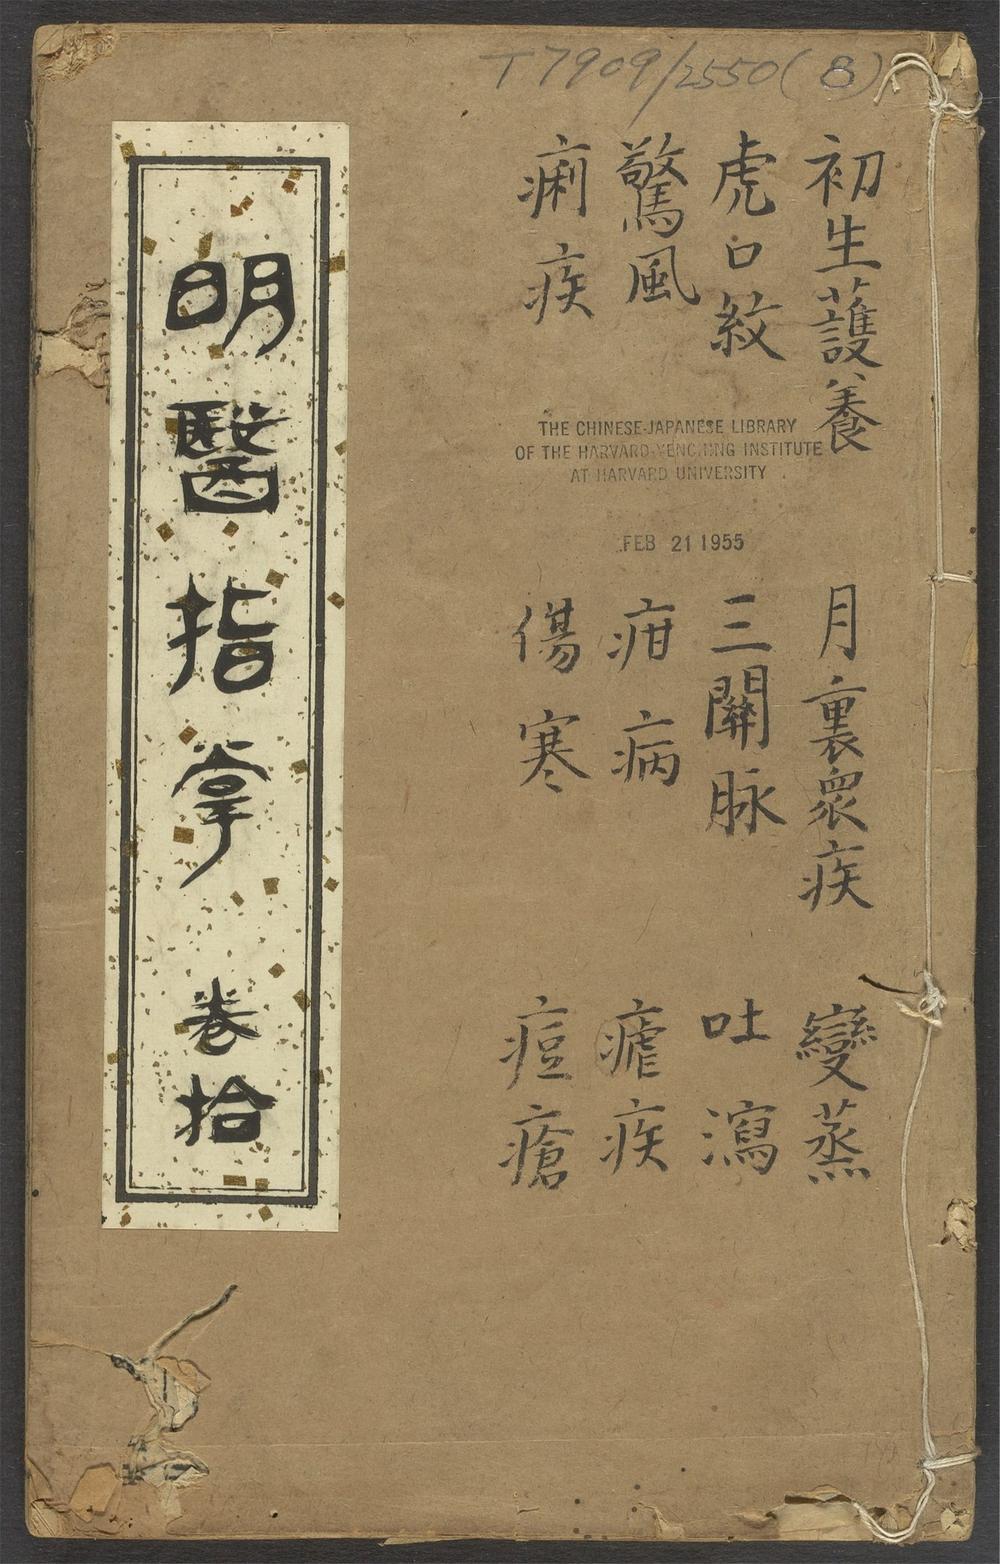 T7909/2550(8)
初生護養 月裏衆疾 變蒸
虎口紋 三關脉 吐瀉
驚風 疳病 瘧疾
痢疾 傷寒 痘瘡
THE CHINESE-JAPANESE LIBRARY
OF THE HARVARD-YENCHING INSTITUTE
AT HARVARD UNIVERSITY
FEB 21 1955
明醫指掌 卷拾